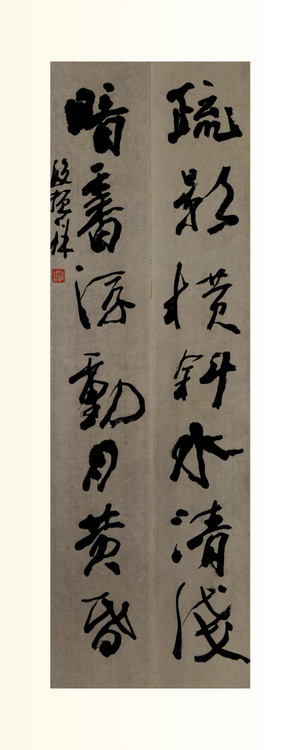 疏影横斜水清淺
暗香浮動月黄昏